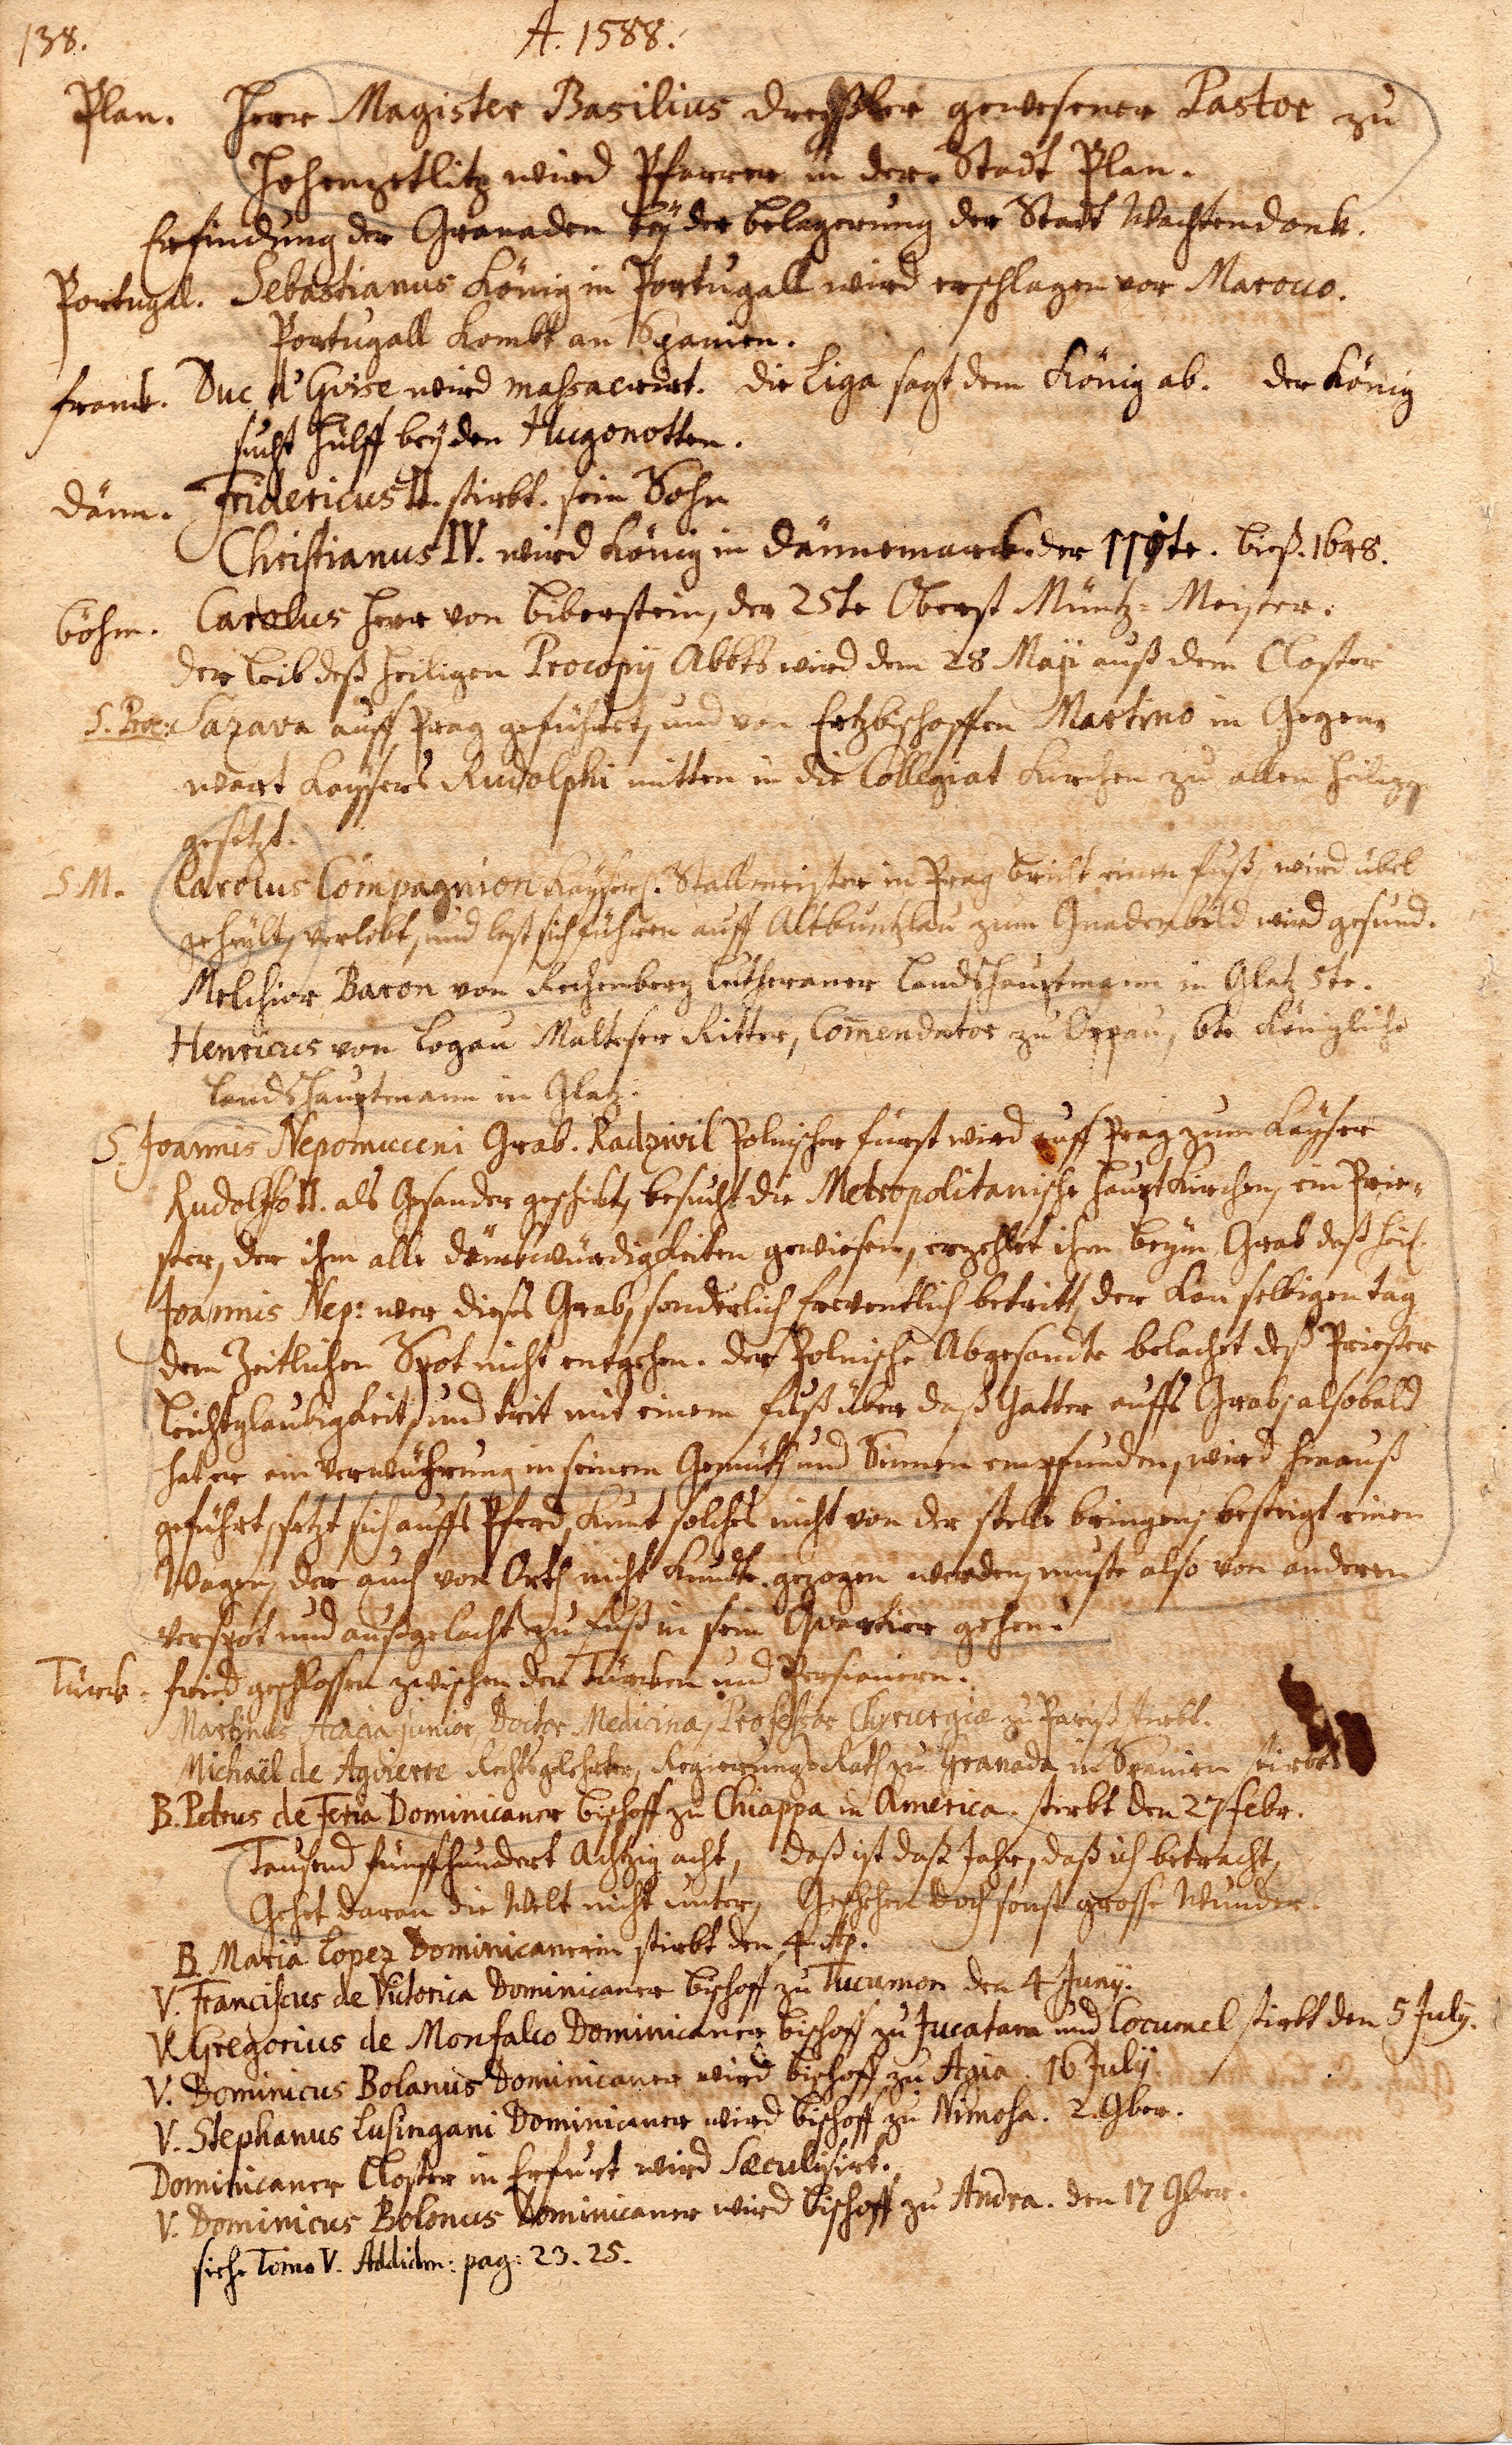 138.
A. 1588.
Plan. Herr Magister Basilius Dreßler gewesener Pastor zu
Hohenzetlitz wird Pfarrer in der Stadt Plan.
Erfindung der Granaden beÿ der belagerung der Stadt Wachtendonk.
Portugal. Sebastianus König in Portugall wird erschlagen vor Marocco.
Portugall kombt an Spanien.
Franck. Duc d'Guise wird massacrirt. die Liga sagt dem König ab. der König
sucht hülff beÿ den Hugonotten.
Dänn. Fridericus II. stirbt. sein Sohn
Christianus IV. wird König in Dännemarck der 110te. biß. 1648.
Böhm. Carolus Herr von Biberstein, der 25te Oberst Müntz-Meister.
der Leib deß Heiligen Procopÿ Abbts wird dem 28 Maji auß dem Closter
S. Proc: Sazava auff Prag geführet, und von Ertzbischoffen Martino in Gegen-
wart Kaÿsers Rudolphi mitten in die Collegiat Kirchen zu allen Heilig
gesetzt.
S M. Carolus Compagnion Kaÿserl. Stallmeister in Prag bricht einen fuß, wird übel
geheÿlt, verlobt, und last sich führen auff Altbuntzlau zum Gnadenbild wird gesund.
Melchior Baron von Rechenberg Lutheraner Landshauptmann in Glatz 5te.
Henricus von Logau Malteser Ritter, Com̃endator zu Troppau, 6te Königliche
Landshauptmann in Glatz.
S. Joannis Nepomuceni Grab. Radzivil Polnischer fürst wird auff Prag zum Kaÿser
Rudolffo II. als Gesander geschikt, besucht die Metropolitanische Hauptkirchen, ein Prie-
ster, der ihm alle denckwürdigkeiten gewiesen, erzehlet ihm beÿm Grab deß heil.
Joannis Nep: wer dieses Grab, sonderlich freventlich betritt, der kan selbigen tag
dem Zeitlichen Spot nicht entgehen. der Polnische Abgesandte belachet deß Priester
leichtglaubigkeit, und trit mit einem fuß über daß Gatter auffs Grab, alsobald
hat er ein Verwührung in seinem Gemüth und Sinnen empfunden, wird hinauß
geführt, setzt sich auffs Pferd, kunt solches nicht von der stelle bringen, besteigt einen
Wagen, der auch von Orth nicht kundte gezogen werden, muste also von anderen
verspot und außgelacht zu fuß in sein Qvartier gehen.
Türck. frid geschlossen zwischen den Türcken und Persianern.
Martinus Acacia junior, Doctor Medicinæ, Professor Chyrurgiæ zu Pariß stirbt.
Michaël de Agvierre Rechtsgelehrter, Regierungs-Rath zu Granada in Spanien stirbt
B. Petrus de Feria Dominicaner bischoff zu Chiappa in America. sterbt den 27 febr.
Tausend fünffhundert Achtzig acht, daß ist daß Jahr, daß ich betracht,
Gehet daran die Welt nicht unter, Geschehen doch sonst grosse Wunder.
B. Maria Lopez Dominicanerin stirbt den 4. Ap.
V. Franciscus de Victorica Dominicaner bischoff zu Tucumon den 4 Junÿ.
V. Gregorius de Monfalco Dominicaner bischoff zu Jucatara und Cocumel stirbt den 5 July.
V. Dominicus Bolanus Dominicaner wird bischoff zu Agia. 16 Julÿ.
V. Stephanus Lusingani Dominicaner wird bischoff zu Nimosa. 2. 9ber.
Dominicaner Closter in Erfurt wird Sæculisirt.
V. Dominicus Bolonus Dominicaner wird bischoff zu Andra. den 17 9ber.
siehe Tomo V. Addidm: pag: 23. 25.